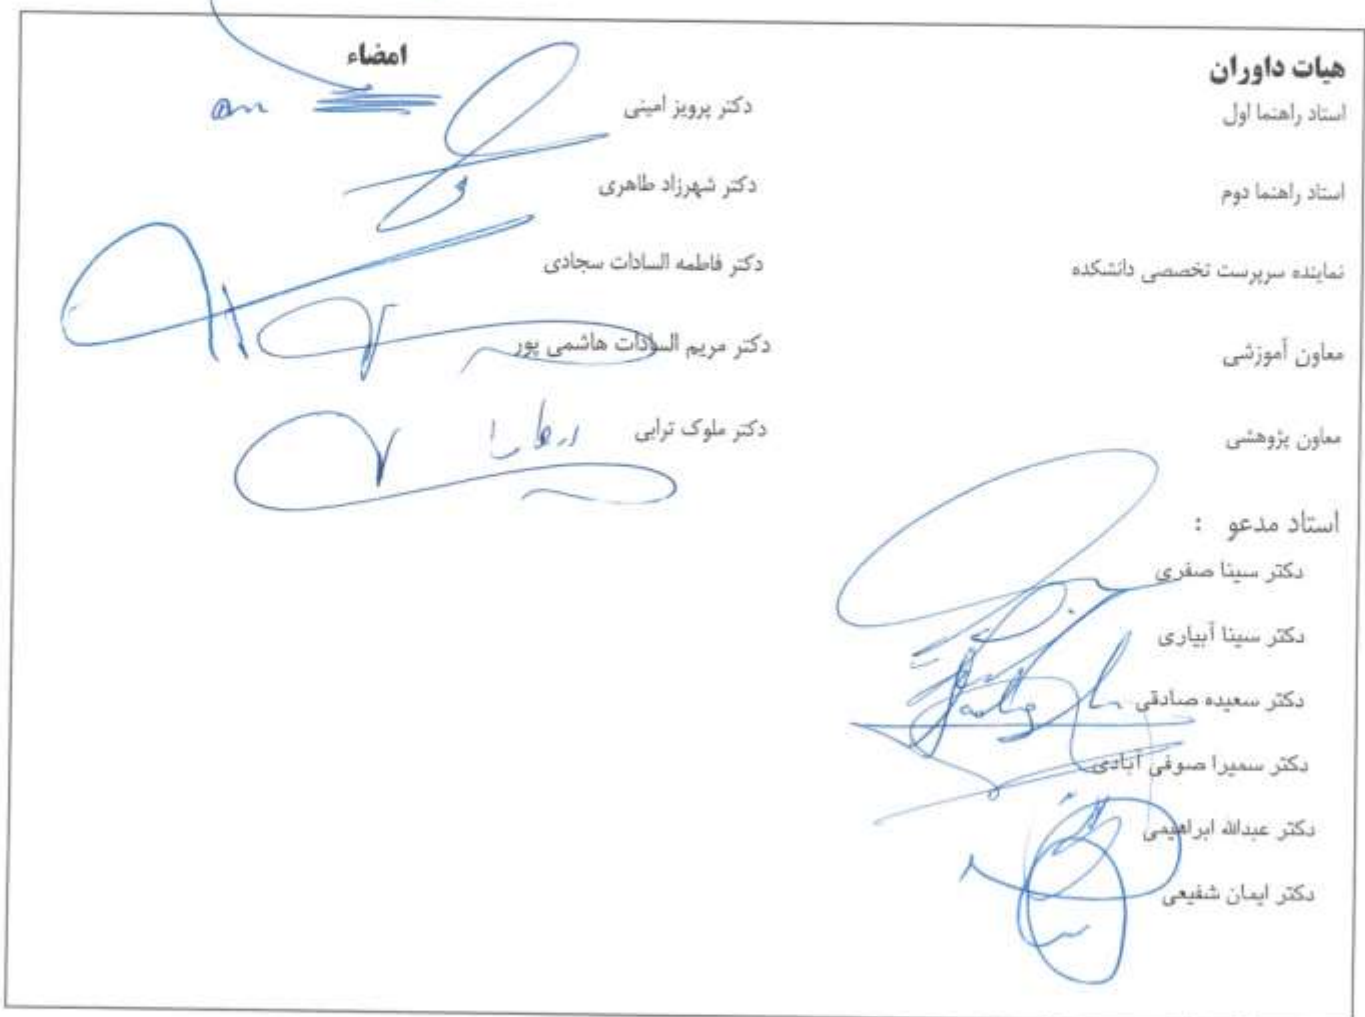 هیات داوران امضاء
استاد راهنما اول دکتر پرویز امینی
استاد راهنما دوم دکتر شهرزاد طاهری
نماینده سرپرست تخصصی دانشکده دکتر فاطمه السادات سجادی
معاون آموزشی دکتر مریم السادات هاشمی پور
معاون پژوهشی دکتر ملوک ترابی
استاد مدعو :
دکتر سینا صفری
دکتر سینا آبیاری
دکتر سعیده صادقی
دکتر سمیرا صوفی آبادی
دکتر عبدالله ابراهیمی
دکتر ایمان شفیعی